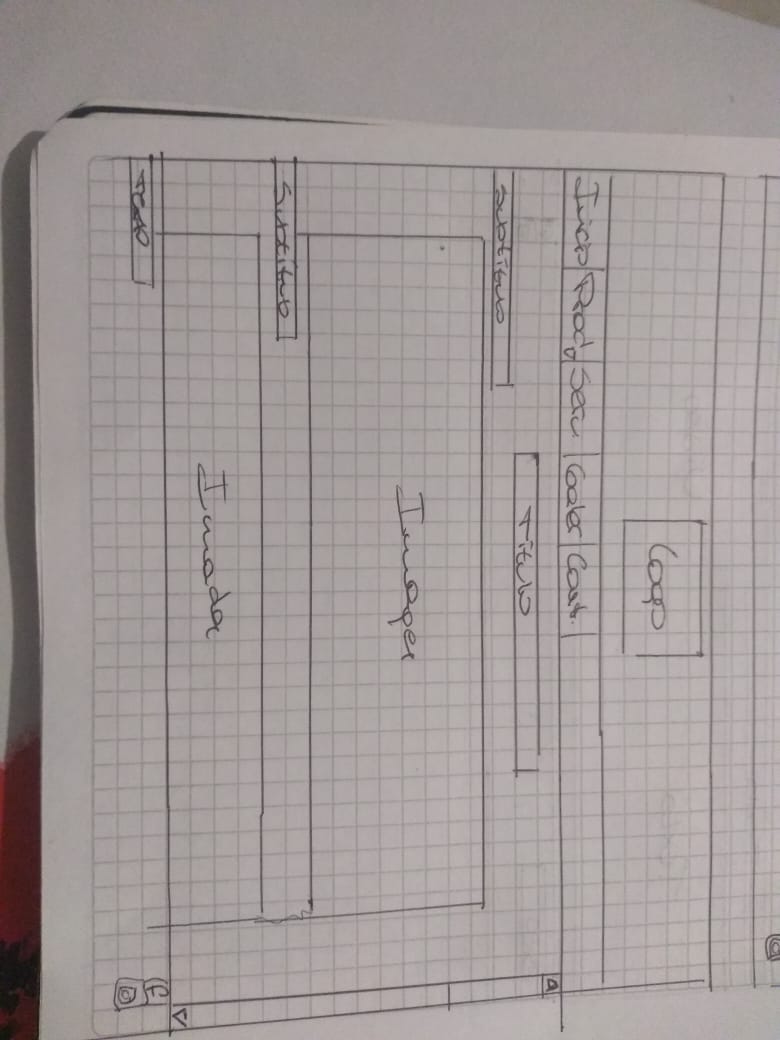 Logo
Inicio Prod. Serv Galer Cont.
Titulo
Subtitulo
Imagen
Subtitulo
Imagen
Texto
f